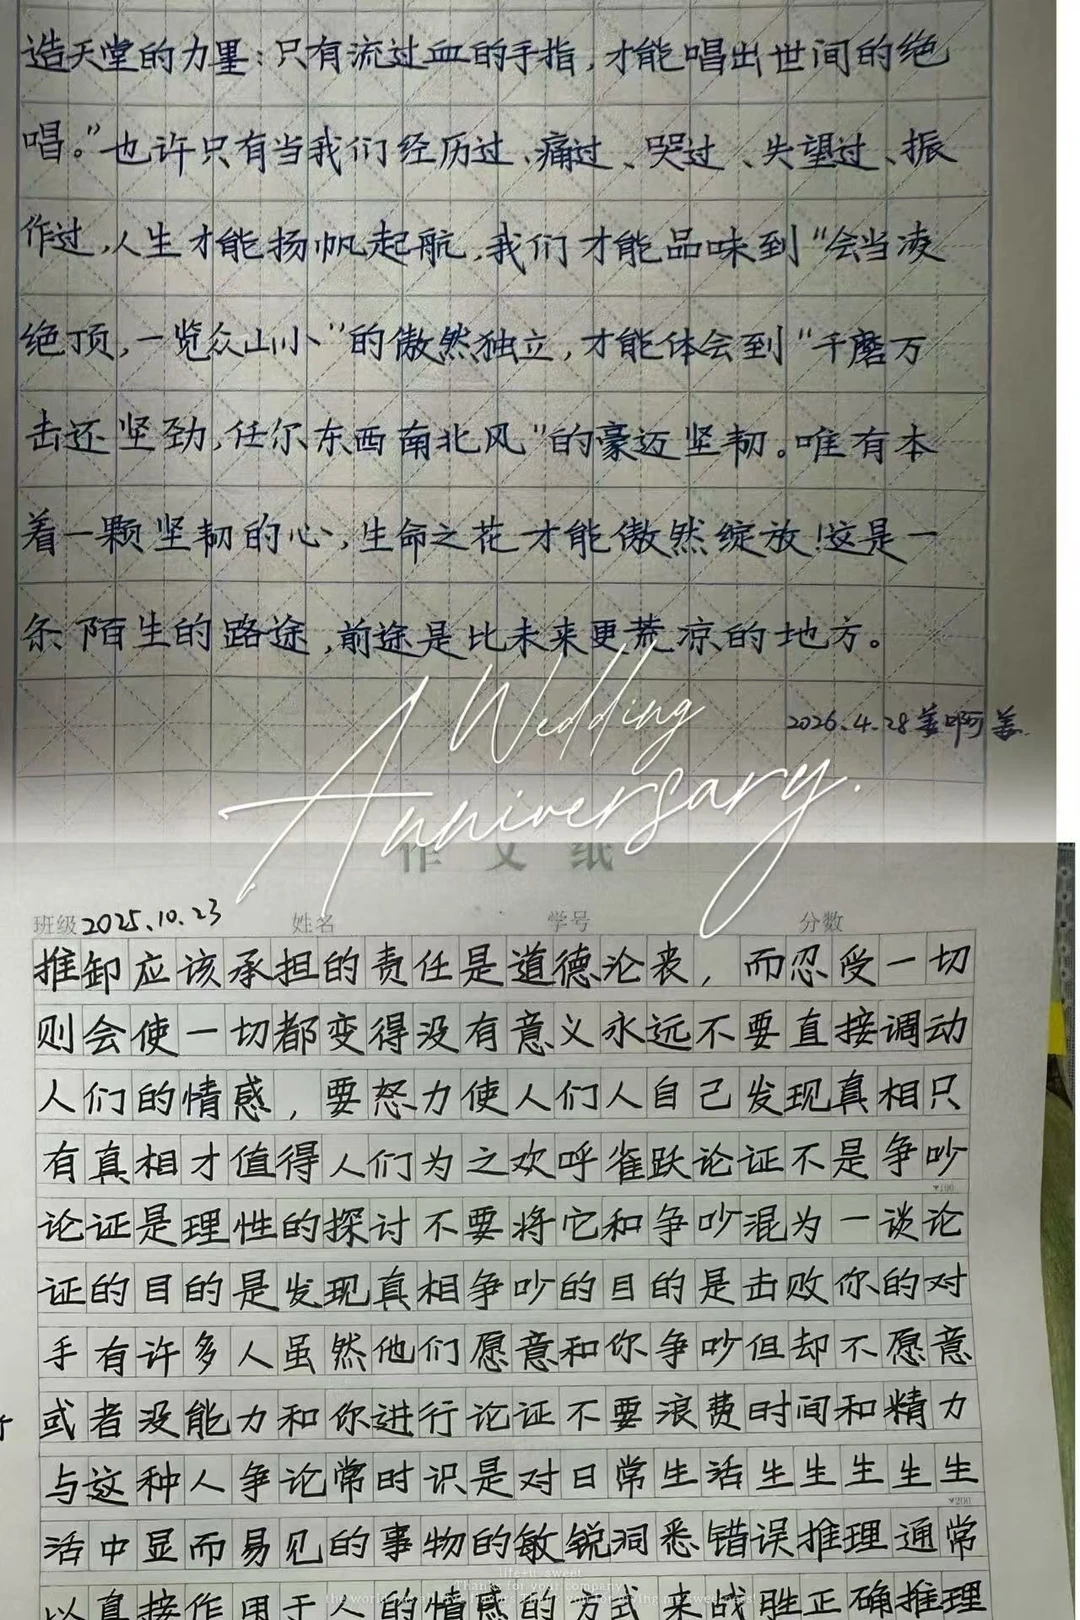 造天堂的力量：只有流过血的手指，才能唱出世间的绝
唱。”也许只有当我们经历过、痛过、哭过、失望过、振
作过，人生才能扬帆起航，我们才能品味到“会当凌
绝顶，一览众山小”的傲然独立，才能体会到“千磨万
击还坚劲，任尔东西南北风”的豪迈坚韧。唯有本
着一颗坚韧的心，生命之花才能傲然绽放！这是一
条陌生的路途，前途是比未来更荒凉的地方。
2026.4.28姜啊姜.
Wedding
Anniversary.
作文纸
班级2025.10.23 姓名 学号 分数
推卸应该承担的责任是道德沦丧，而忍受一切
则会使一切都变得没有意义永远不要直接调动
人们的情感，要怒力使人们人自己发现真相只
有真相才值得人们为之欢呼雀跃论证不是争吵
▼100
论证是理性的探讨不要将它和争吵混为一谈论
证的目的是发现真相争吵的目的是击败你的对
手有许多人虽然他们愿意和你争吵但却不愿意
或者没能力和你进行论证不要浪费时间和精力
与这种人争论常时识是对日常生活生生生生生
▼200
活中显而易见的事物的敏锐洞悉错误推理通常
life+n sweet
Thanks for your company
以直接作用于人的情感的方式来战胜正确推理